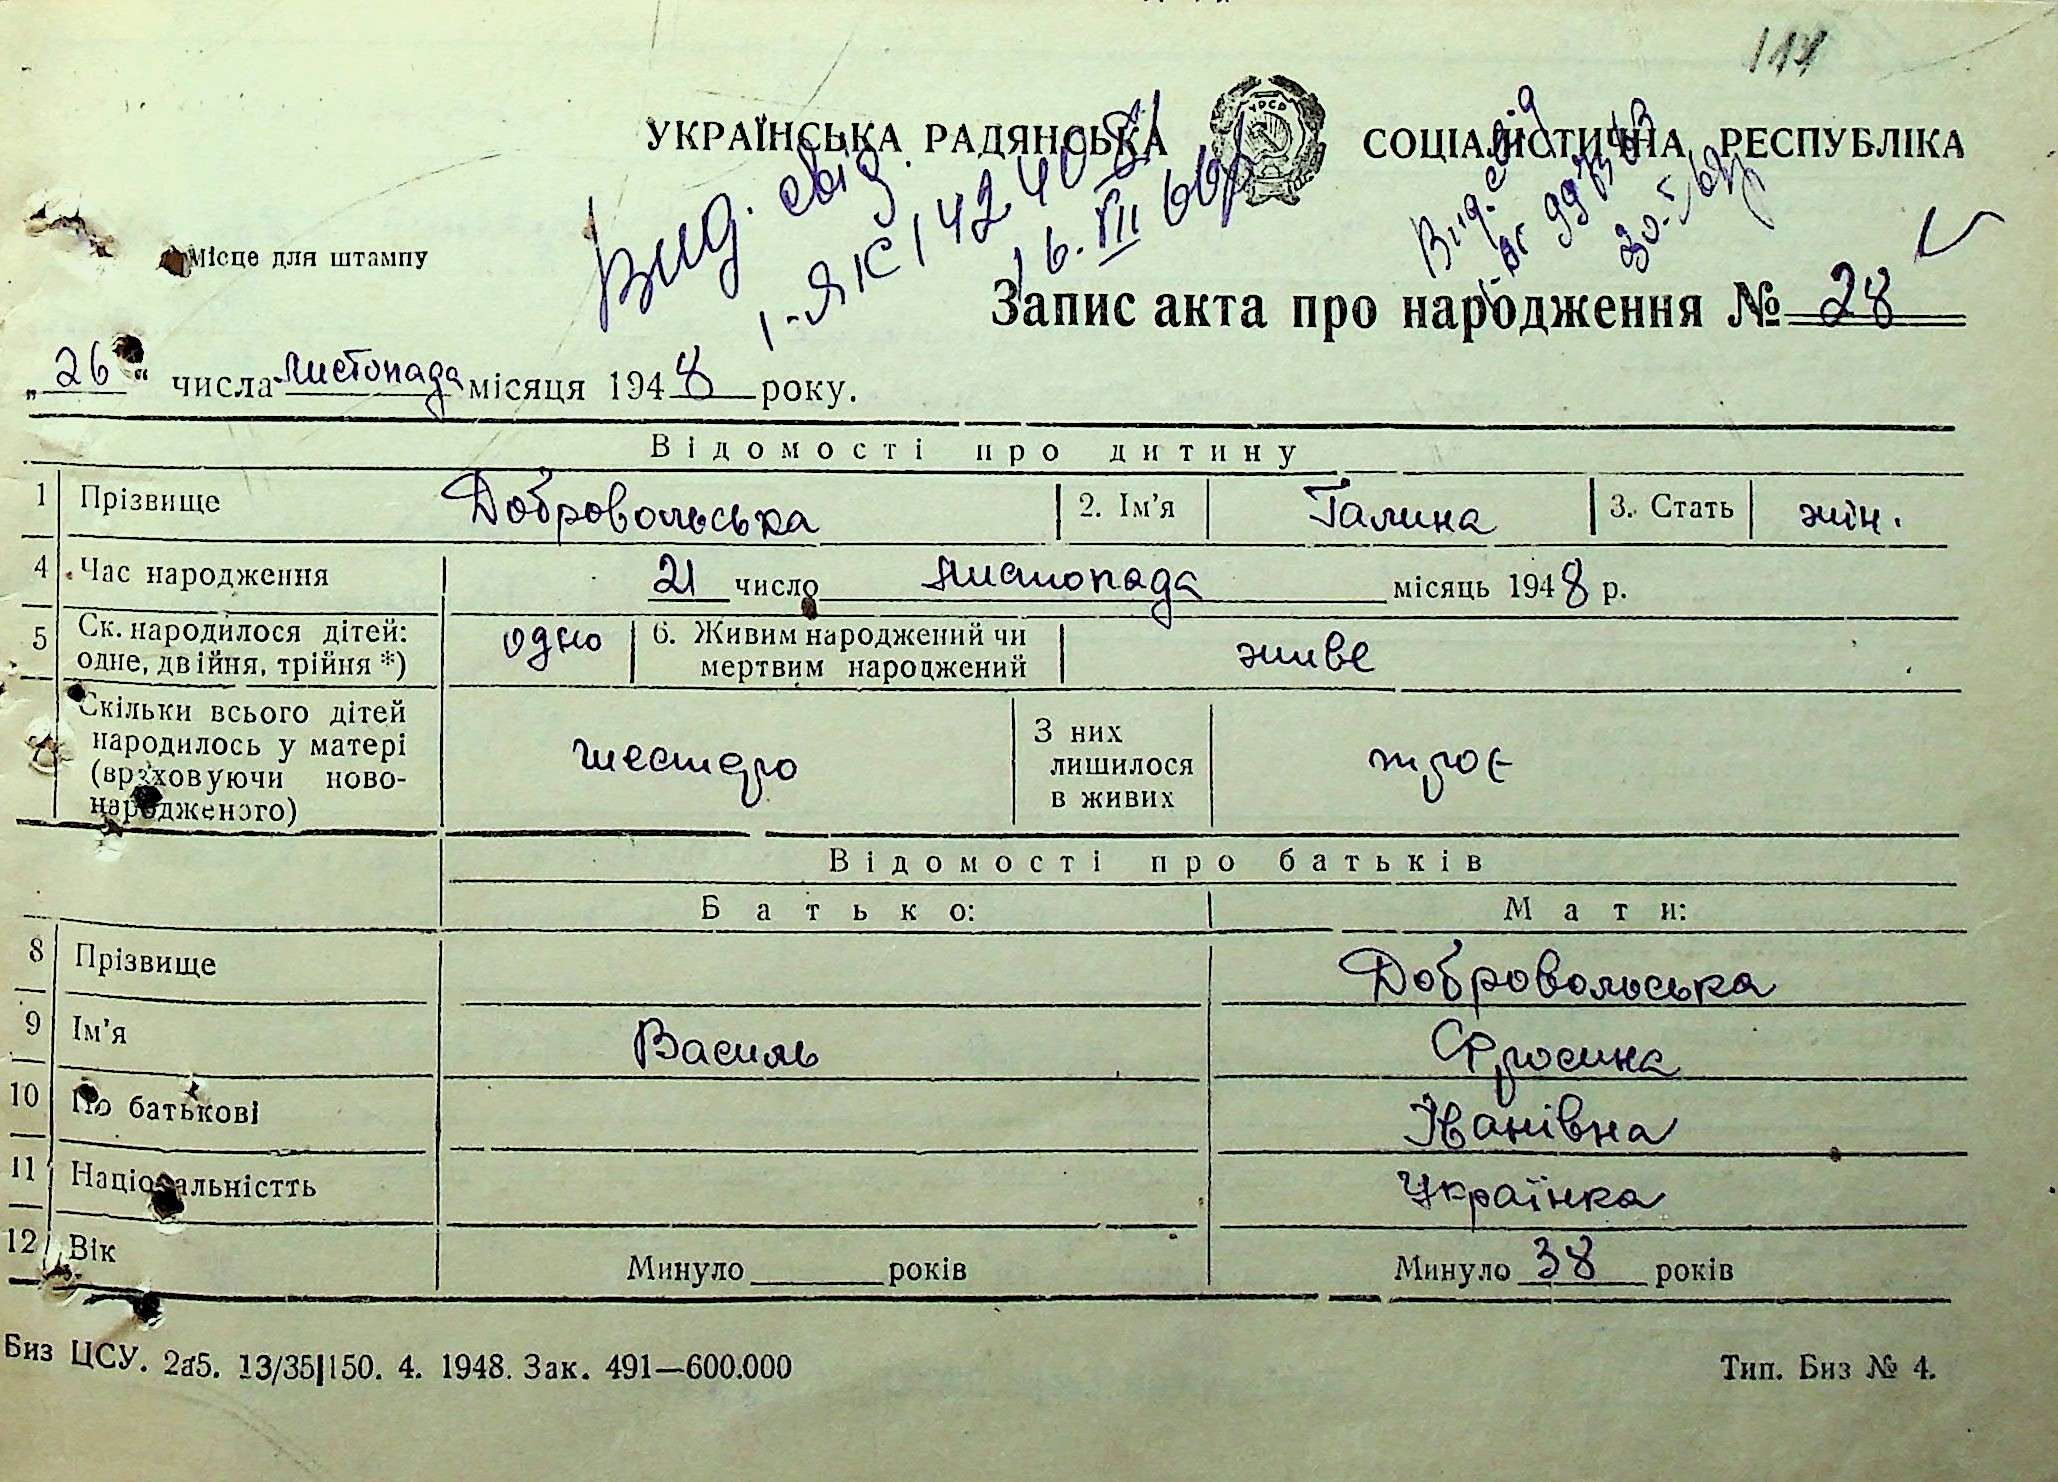 УКРАЇНСЬКА РАДЯНСЬКА СОЦІАЛІСТИЧНА РЕСПУБЛІКА
УРСР
Місце для штампу
Вид. свід.
16.VII 66р
Вид. свід
Запис акта про народження № 28
„26“ числа листопада місяця 1948 року.
Відомості про дитину
1 Прізвище Добровольська 2. Ім'я Галина 3. Стать жін.
4 Час народження 21 число листопада місяць 1948 р.
5 Ск. народилося дітей: одне, двійня, трійня *) одно 6. Живим народжений чи мертвим народжений живе
7 Скільки всього дітей народилось у матері (враховуючи ново-народженого) шестеро З них лишилося в живих троє
Відомості про батьків
Батько: Мати:
8 Прізвище Добровольська
9 Ім'я Василь Фросина
10 По батькові Іванівна
11 Національністть Українка
12 Вік Минуло ____ років Минуло 38 років
Биз ЦСУ. 2а5. 13/35|150. 4. 1948. Зак. 491—600.000 Тип. Биз № 4.